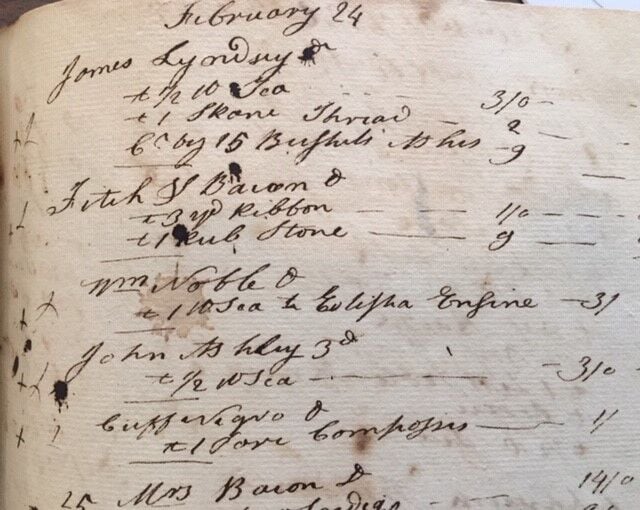 February 24
James Lyndsey Dr
t 1/2 lb Tea 3/0
t 1 Skane Thread 2
Cr by 15 Bushels Ashes 9
Fitch & Bacon D
t 3 yd Ribbon 1/0
t 1 Rub Stone 9
Wm Noble D
t 1 lb Tea to Eolipha Engine 3/
John Ashley 3d
t 1/2 lb Tea 3/0
Cuff Negro D
t 1 pare Compasses 1/
25 Mrs Bacon D 14/0